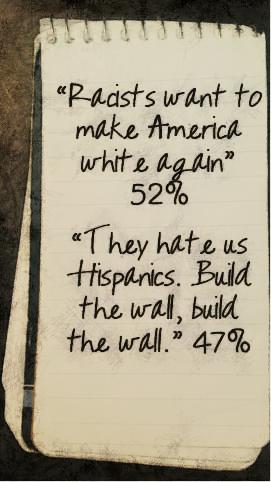 "Racists want to
make America
white again"
52%
"They hate us
Hispanics. Build
the wall, build
the wall." 47%